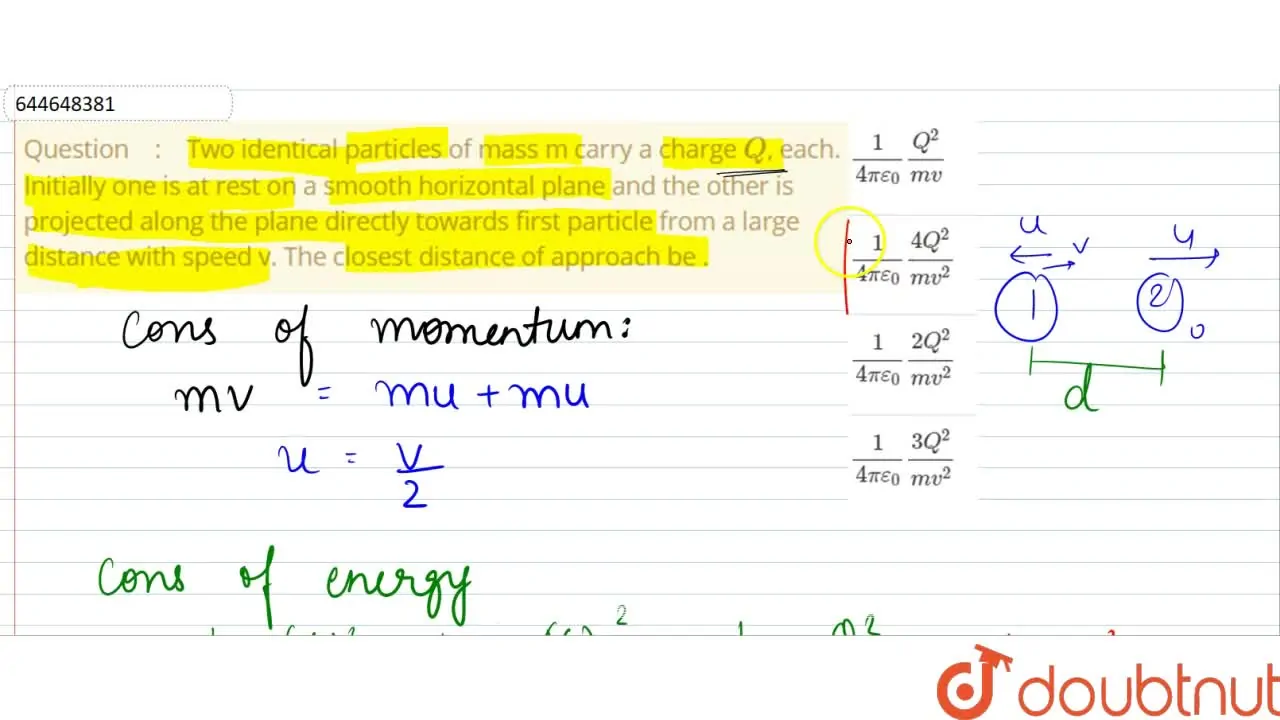 644648381
Question : Two identical particles of mass m carry a charge Q, each.
Initially one is at rest on a smooth horizontal plane and the other is
projected along the plane directly towards first particle from a large
distance with speed v. The closest distance of approach be .
1/4πε₀ Q²/mv
1/4πε₀ 4Q²/mv²
1/4πε₀ 2Q²/mv²
1/4πε₀ 3Q²/mv²
u v u
1 2 0
d
Cons of momentum:
mv = mu + mu
u = v/2
Cons of energy
doubtnut